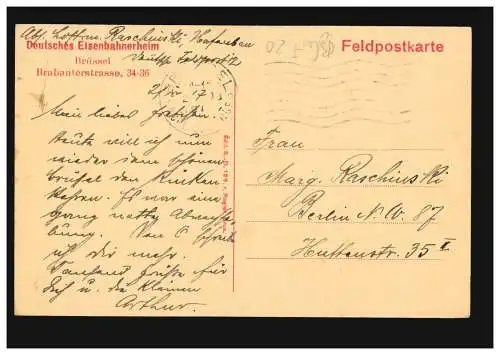 Abs. Lottm. Raschinski, Hafenbau
Deutsches Eisenbahnerheim
Deutsche Feldpost
Brüssel
Brabanterstrasse, 34-36
Feldpostkarte
17
Mein liebes
Heute will ich nun
wieder dem schönen
Brüssel den Rücken
kehren. Es war eine
ganz nette Abwechs-
lung. Von
ich dir mehr.
Tausend Grüße für
Dich u. die Kleinen
Arthur
Frau
Marg. Raschinski
Berlin N.W. 87
Huttenstr. 35 II